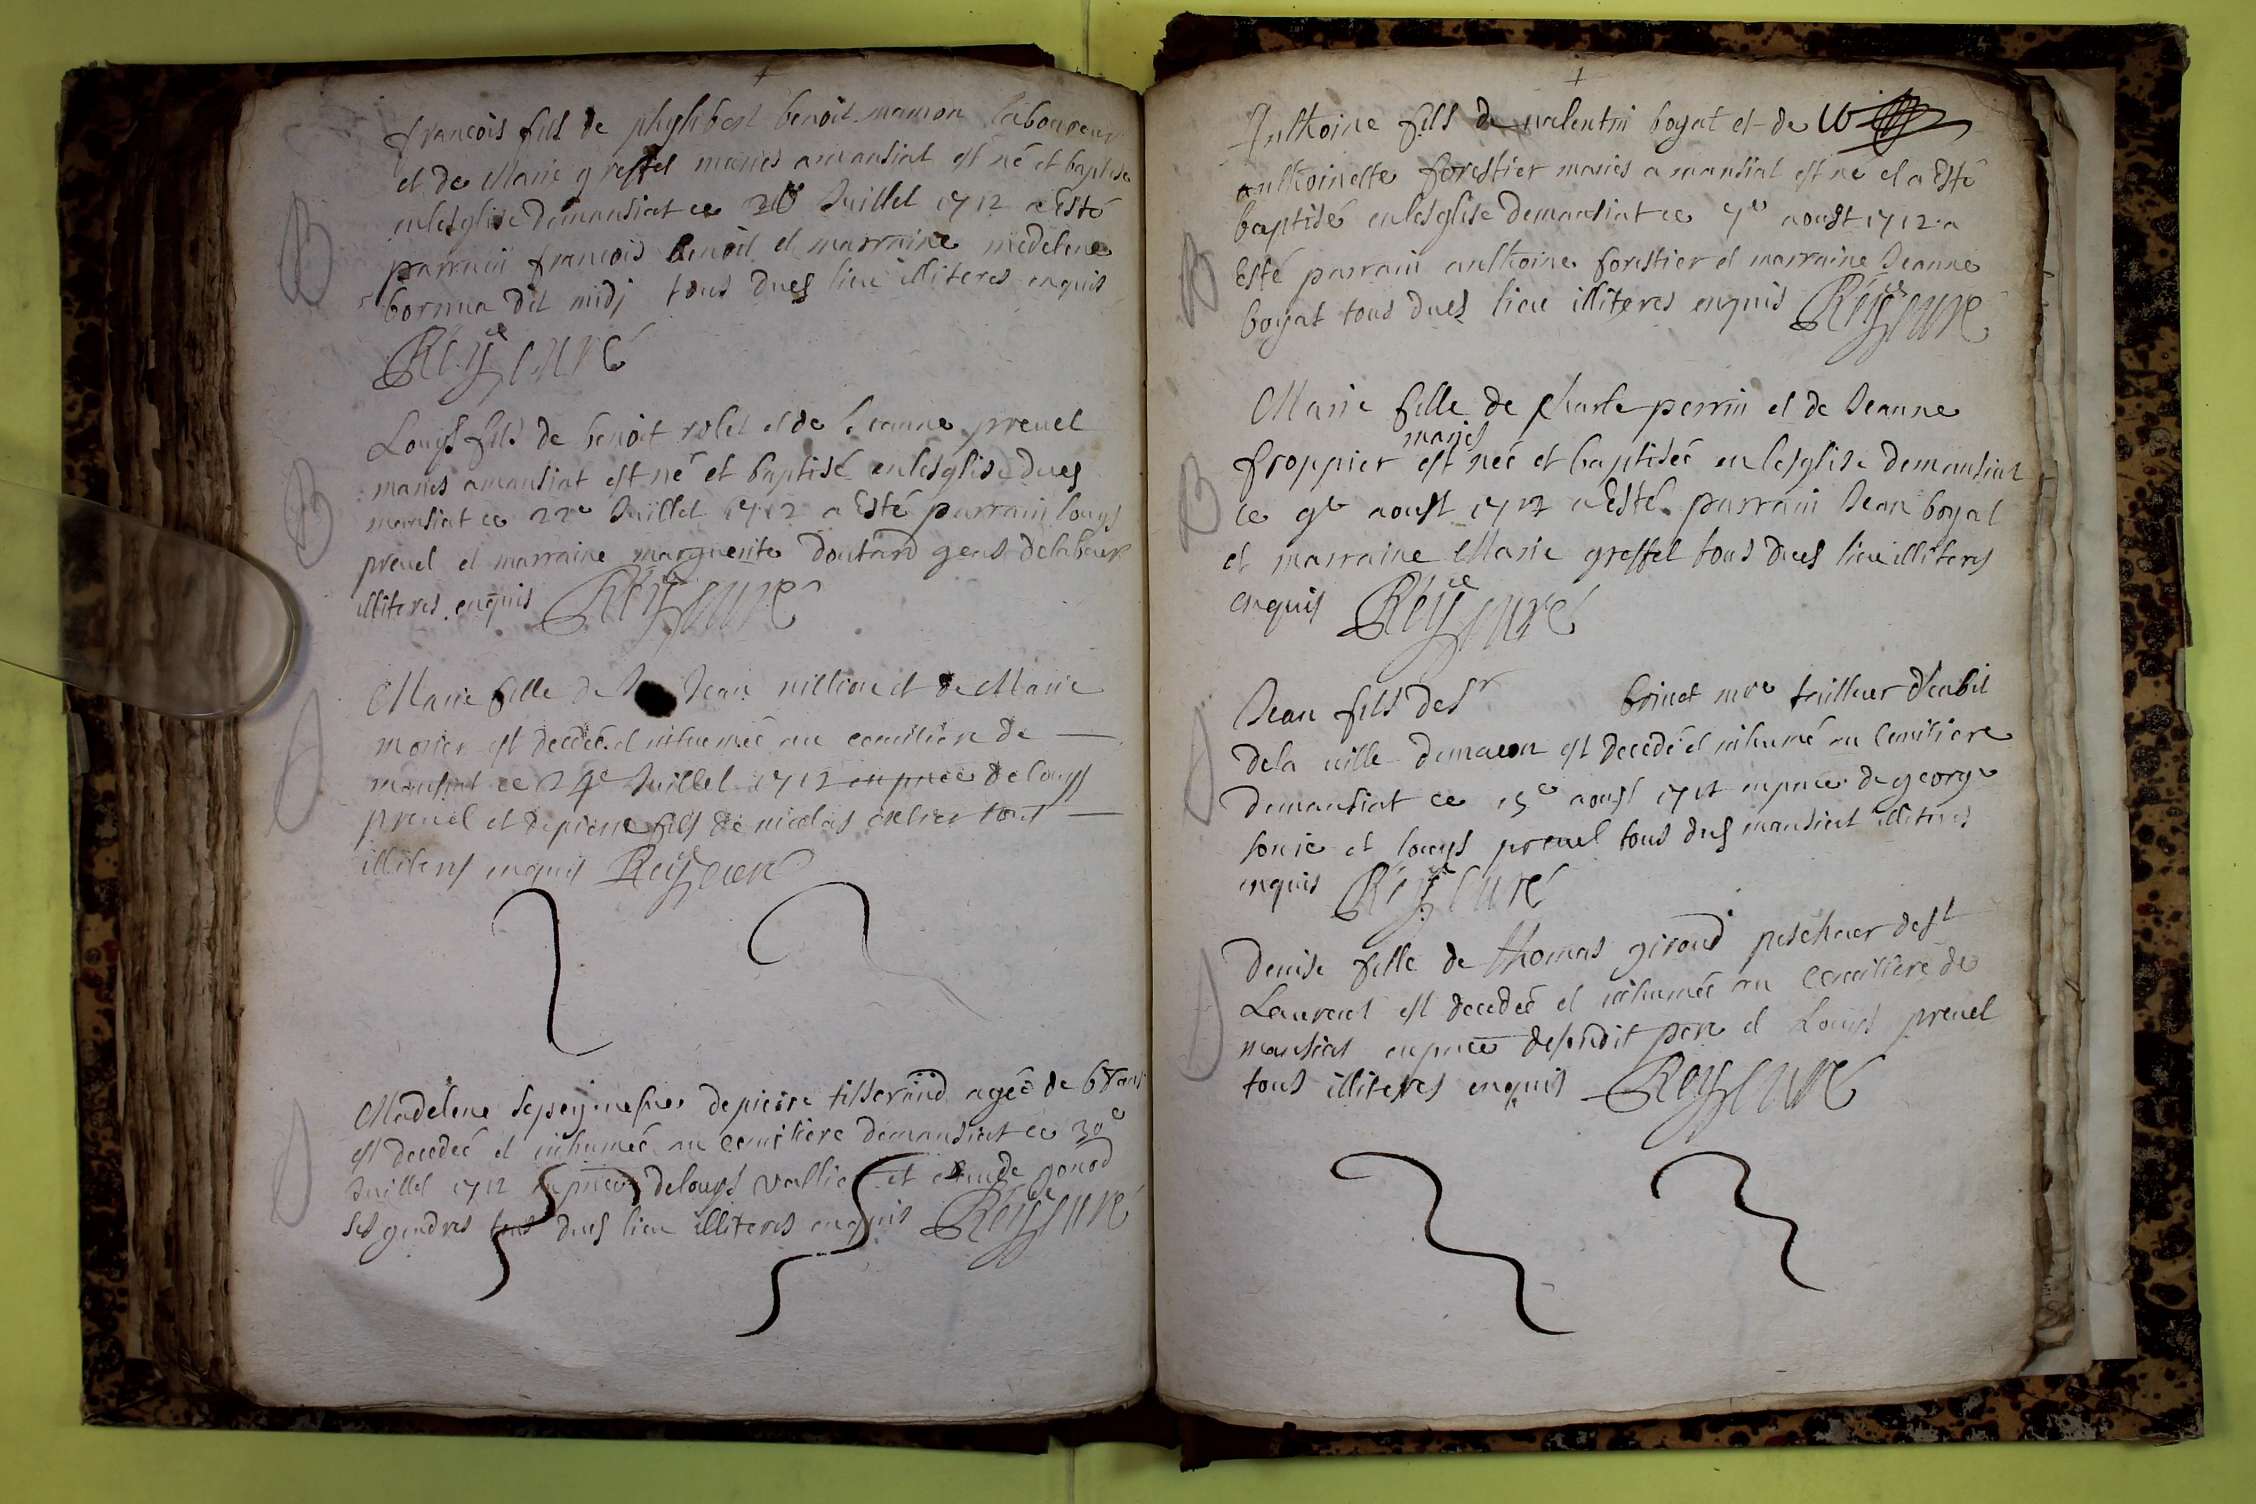 francois fils de phylibert benoit manion laboureur
et de Marie greffet mariés a mansiat est né et baptisé
en lesglise demansiat ce Juillet 1712 a Esté
parrain francois benoit et marraine medelene
bornua dit midj tous dues lieu illiteres enquis
B
Rey curé
Louys fils de benoit rolet et de Jeanne preuel
mariés amansiat est né et baptisé en lesglise dues
mansiat ce 22e Juillet 1712 a Esté parrain louys
preuel et marraine marguerite doutard gens delabeur
illiteres enquis Rey curé
B
Marie fille de Jean nillion et de Marie
monier est decedeé et inhumeé au cemitiere de
mansiat ce 24e Juillet 1712 en pnce de louys
preuel et de pierre fils de nicolas tous
illiteres enquis Rey curé
Madelene de pierre tisserand ageé de ans
est decedeé et inhumeé au cemitiere demansiat ce 30e
Juillet 1712 en pnce de louys vallier et claude gonod
ses gendres tous dues lieu illiteres enquis Rey curé
Anthoine fils de valentin boyat et de
anthoinette forestier mariés a mansiat est né et a Esté
baptisé en lesglise demansiat ce 7e aoust 1712 a
Esté parrain anthoine forestier et marraine Jeanne
boyat tous dues lieu illiteres enquis Rey curé
B
Marie fille de charle perrin et de Jeanne
mariés
froppier est neé et baptiseé en lesglise demansiat
ce 9e aoust 1712 a Esté parrain Jean boyat
et marraine Marie greffet tous dues lieu illiteres
enquis Rey curé
B
Jean fils de Sr brinet mre tailleur d'habit
dela ville demacon est decedé et inhumé au cemitiere
demansiat ce 15e aoust 1712 en pnce de george
sonie et louys preuel tous dues mansiat illiteres
enquis Rey curé
Denise fille de thomas giroud pescheur de st
Laurent est decedeé et inhumeé au cemitiere de
mansiat en pnce desondit pere et Louys preuel
tous illiteres enquis Rey curé